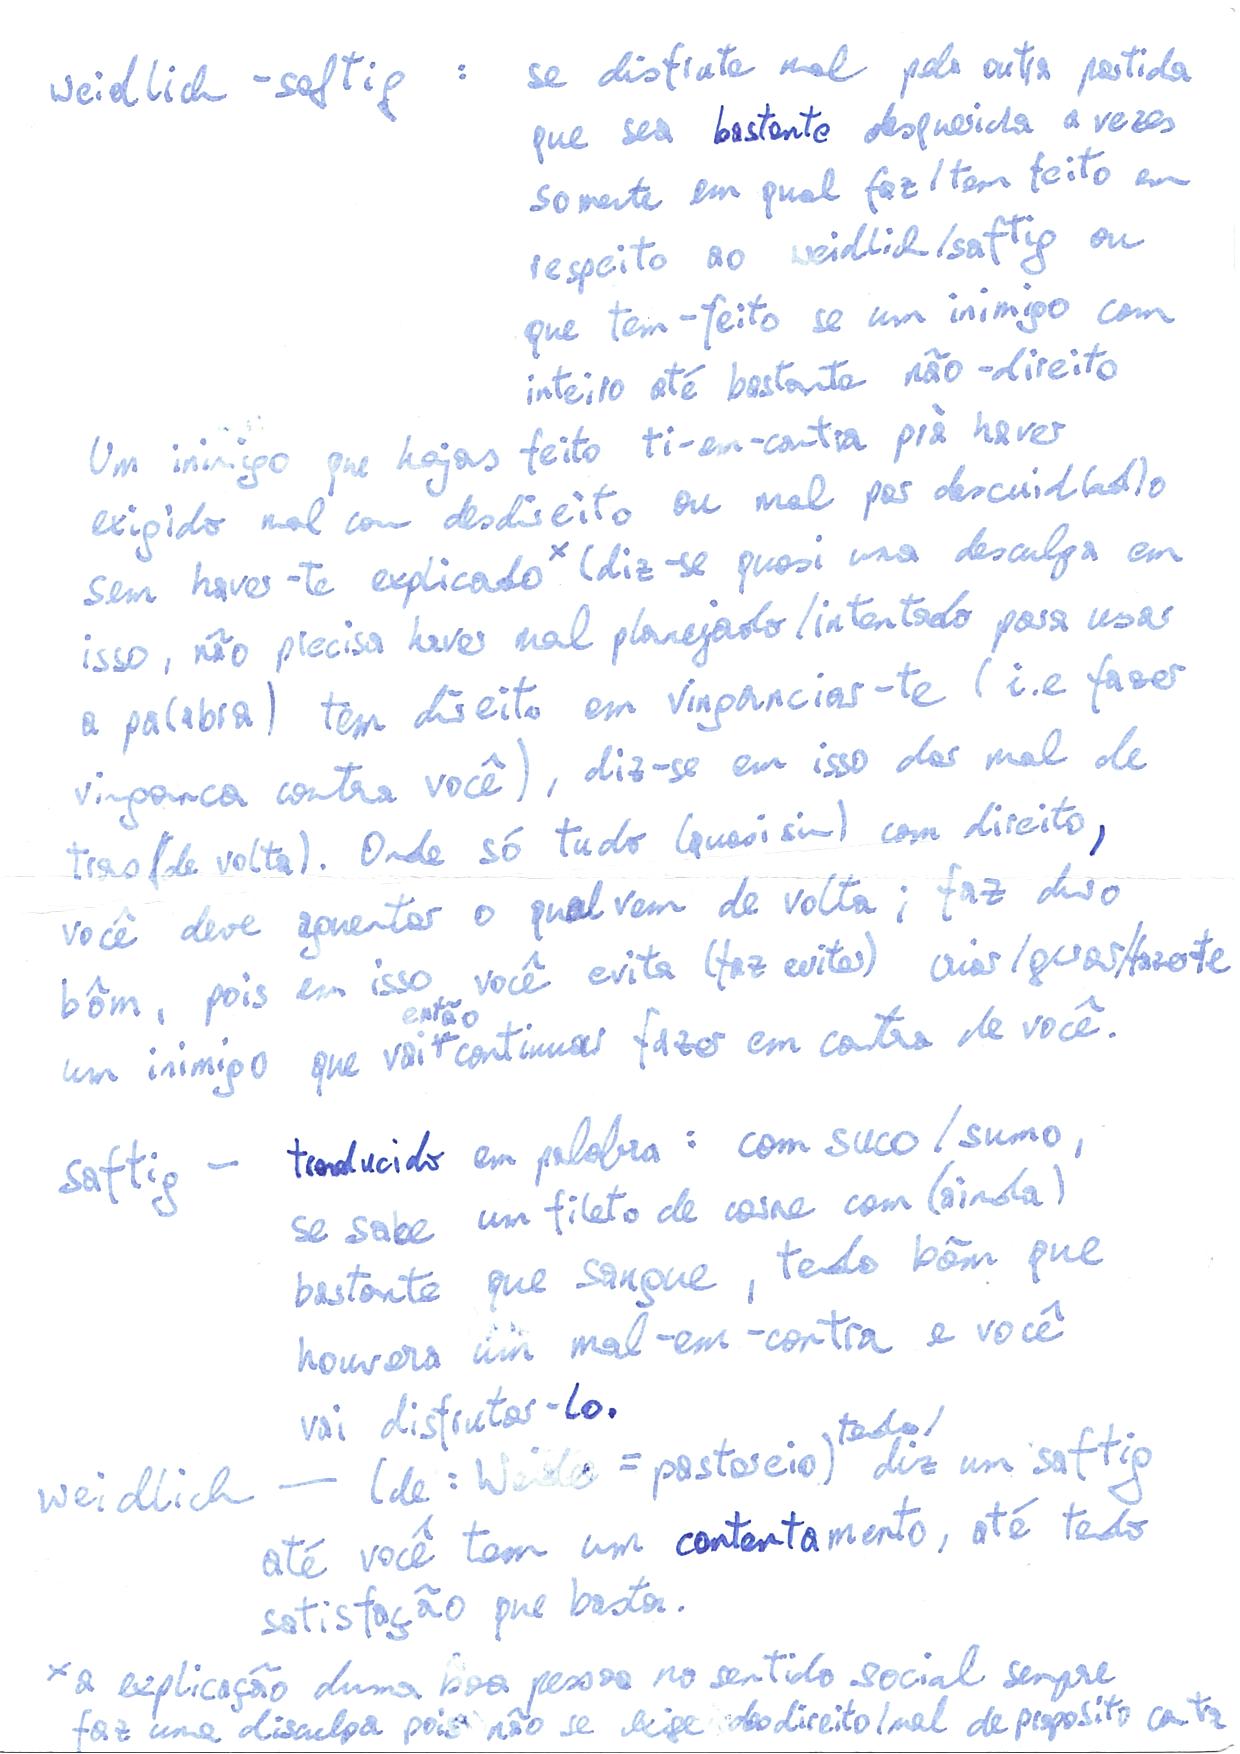 weidlich -saftig : se disfrute mal pela outra partida
que sea bastante desquerida a vezes
somente em qual faz/tem feito em
respeito ao weidlich/saftig ou
que tem-feito se um inimigo com
inteiro até bastante não-direito
Um inimigo que hajas feito ti-em-contra prà haver
exigido mal com desdireito ou mal por descuid(ad)o
sem haver-te explicado x (diz-se quasi una desculpa em
isso, não precisa haver mal planejado/intentado para usar
a palabra) tem direito em vingànciar-te (i.e fazer
vingança contra você), diz-se em isso dar mal de
tras(de volta). Onde só tudo (quasi sim) com direito,
você deve aguentar o qual vem de volta; faz duro
bôm, pois em isso você evita (faz evitar) criar/gerar/fazerte
um inimigo que vai então continuar fazer em contra de você.
saftig - traducido em palabra : com suco/sumo,
se sabe um fileto de carne com (ainda)
bastante que sangue, tendo bôm que
houvera um mal-em-contra e você
vai disfrutar-lo.
weidlich — (de: Weide = pastoreio) tendo/ diz um saftig
até você tem um contentamento, até tendo
satisfação que basta.
x a explicação duma boa pessoa no sentido social sempre
faz uma disculpa pois não se exige desdireito/mal de proposito contra